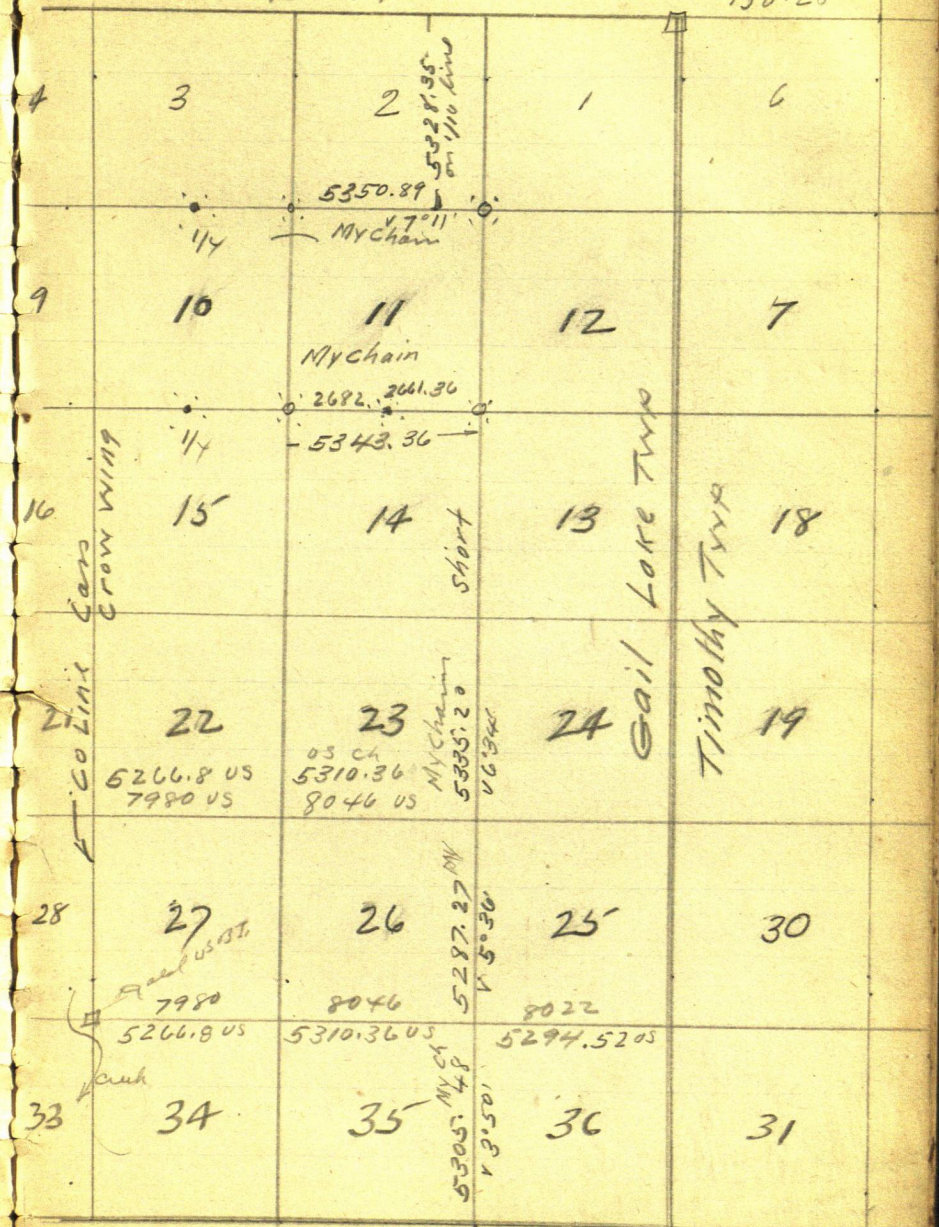 4 3 2 1 6
5328.35
on 1/16 line
5350.89
V 7°11'
1/4
My Chain
9 10 11 12 7
My Chain
2682. 2661.36
1/4
5343.36
16 15 14 13 18
Short
Co Line Cass
Crow Wing
Gail Lake Twp
Timothy Twp
21 22 23 24 19
5266.8 US
7980 US
US Ch
5310.36
8046 US
My Chain
5335.20
V 6°34'
28 27 26 25 30
5287.27 My
V 5°36'
7980
5266.8 US
8046
5310.36 US
8022
5294.52 US
33 34 35 36 31
5305.48 My Ch
V 3°50'